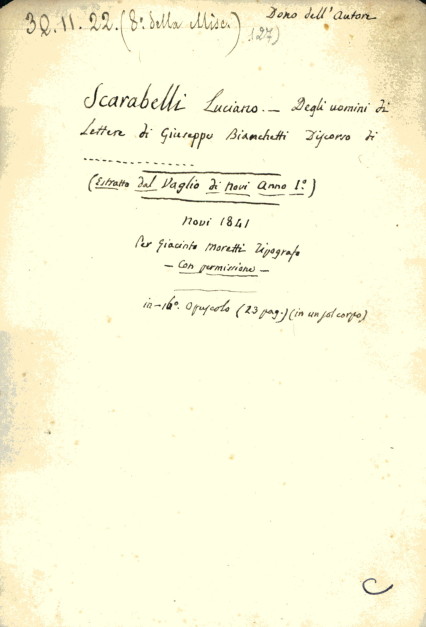 30.11.22. (8ª della Misc.) 127)
Dono dell' Autore
Scarabelli Luciano. — Degli uomini di
Lettere di Giuseppe Bianchetti Discorso di
--------------
(Estratto dal Vaglio di Novi Anno Iº)
Novi 1841
Per Giacinto Moretti Tipografo
— Con permissione —
in-16º. Opuscolo (23 pag.) (in un sol corpo)
C